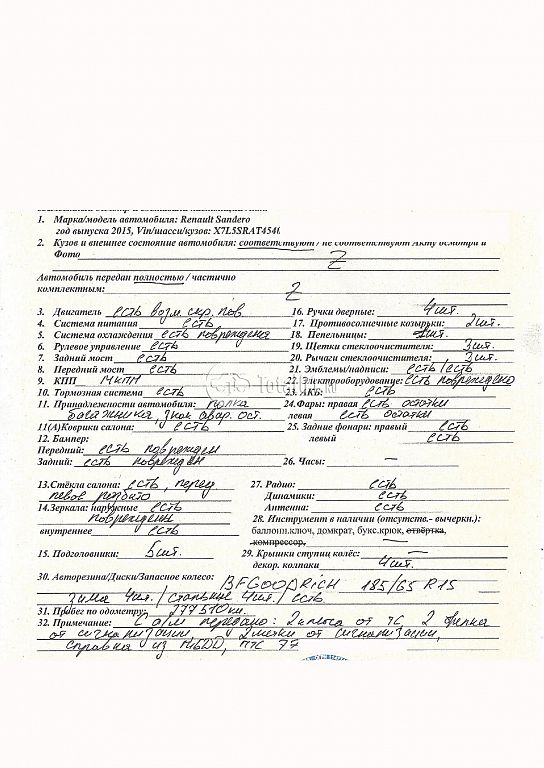 1. Марка/модель автомобиля: Renault Sandero
год выпуска 2015, Vin/шасси/кузов: X7L5SRAT454
2. Кузов и внешнее состояние автомобиля: соответствуют / не соответствуют Акту осмотра и
Фото Z
Автомобиль передан полностью / частично
комплектным: Z
3. Двигатель есть возм. скр. пов.
4. Система питания есть
5. Система охлаждения есть повреждена
6. Рулевое управление есть
7. Задний мост есть
8. Передний мост есть
9. КПП МКПП
10. Тормозная система есть
11. Принадлежности автомобиля: полка
багажника, знак авар. ост.
11(А)Коврики салона: есть
12. Бампер:
Передний: есть поврежден
Задний: есть поврежден
13.Стёкла салона: есть, перед
левое разбито
14.Зеркала: наружные есть
повреждены
внутреннее есть
15. Подголовники: 5 шт.
16. Ручки дверные: 4 шт.
17. Противосолнечные козырьки: 2 шт.
18. Пепельницы: шт.
19. Щетки стеклоочистителя: 3 шт.
20. Рычаги стеклоочистителя: 3 шт.
21. Эмблемы/надписи: есть/есть
22. Электрооборудование: есть повреждено
23. АКБ: есть
24.Фары: правая есть остатки
левая есть остатки
25. Задние фонари: правый есть
левый есть
26. Часы: —
27. Радио: есть
Динамики: есть
Антенна: есть
28. Инструмент в наличии (отсутств.- вычеркн.):
баллонн.ключ, домкрат, букс.крюк, отвёртка,
компрессор,
29. Крышки ступиц колёс: —
декор. колпаки 4 шт.
30. Авторезина/Диски/Запасное колесо: BFGOODRICH 185/65 R15
зима 4шт. / стальные 4шт. / есть
31. Пробег по одометру: 277510 км.
32. Примечание: С а/м передано: 2 ключа от ТС, 2 брелка
от сигнализации, 2 метки от сигнализации,
справка из ГИБДД, ПТС 77